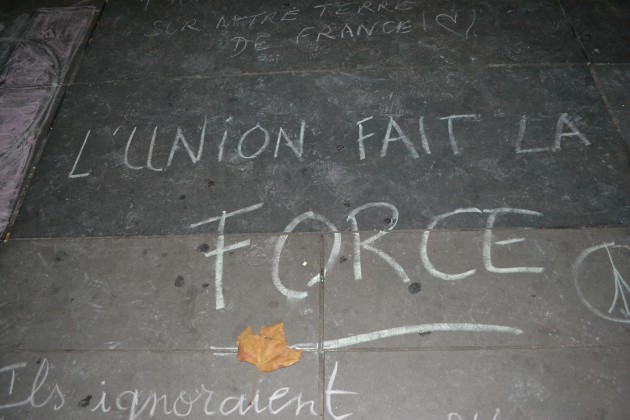 SUR NOTRE TERRE
DE FRANCE!
L'UNION FAIT LA
FORCE
Ils ignoraient